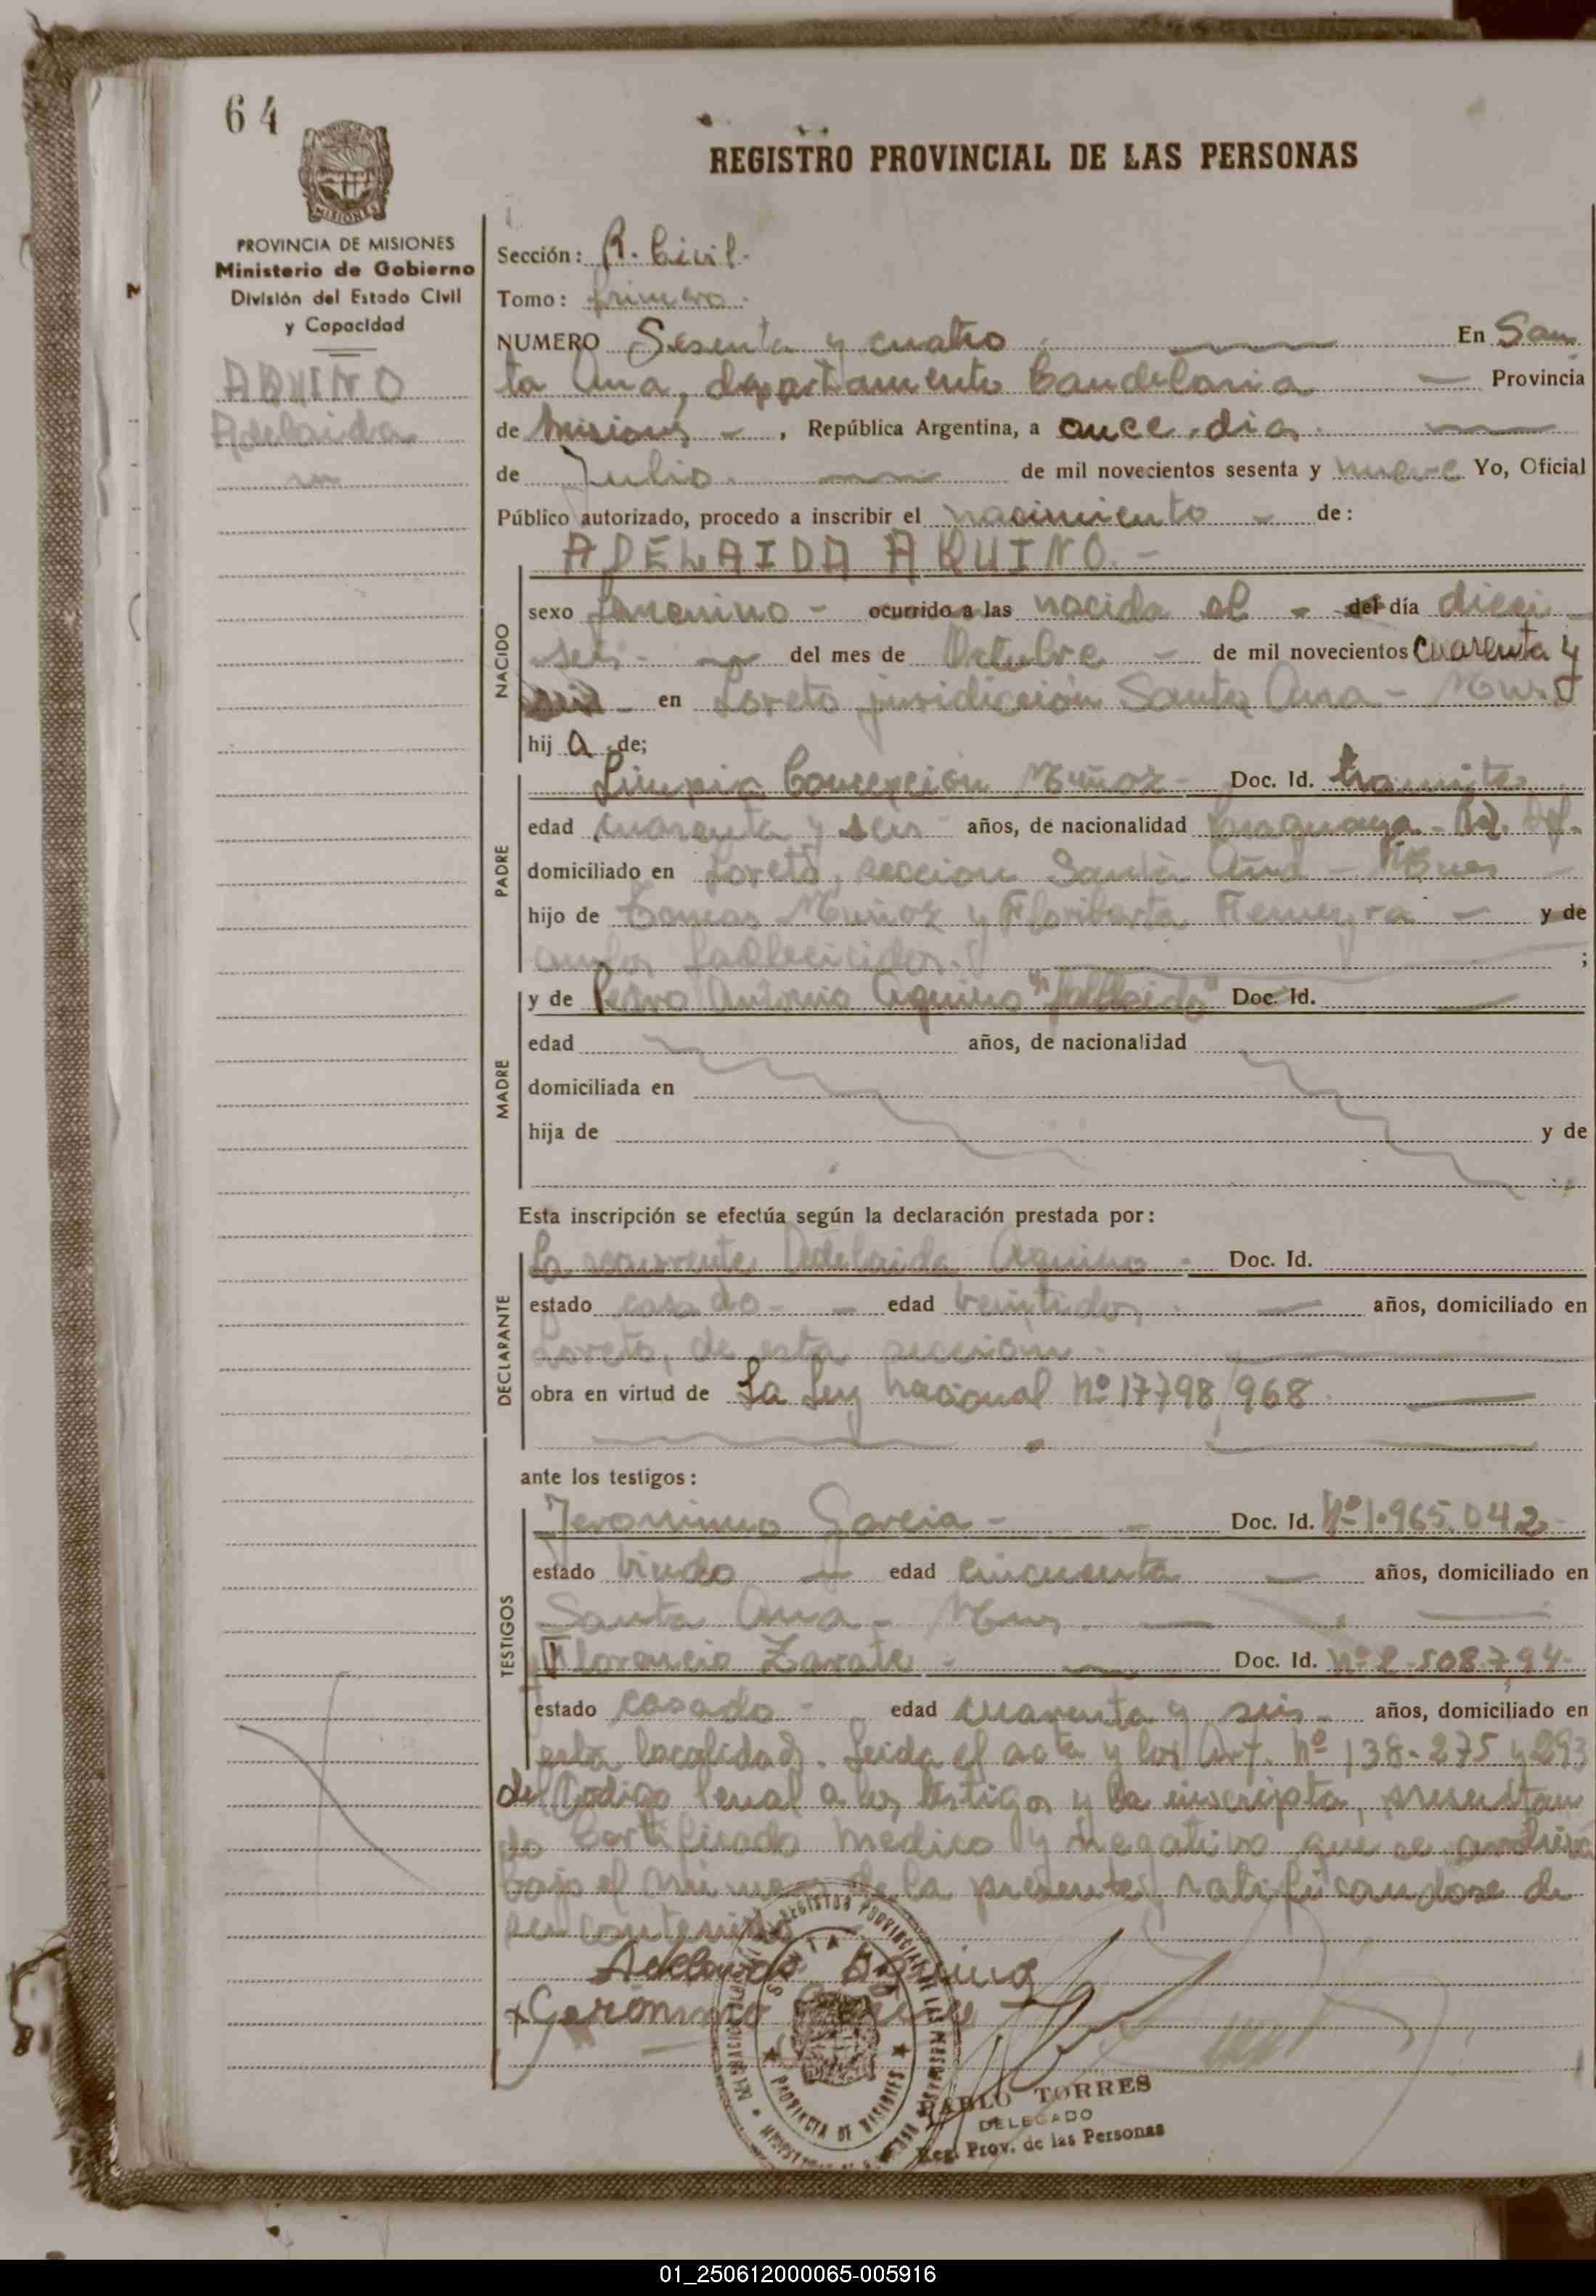 64
REGISTRO PROVINCIAL DE LAS PERSONAS
MISIONES
PROVINCIA DE MISIONES
Ministerio de Gobierno
División del Estado Civil
y Capacidad
AQUINO
Adelaida
Sección: R. Civil.
Tomo: primero.
NUMERO Sesenta y cuatro En San
ta Ana, departamento Candelaria — Provincia
de Misiones —, República Argentina, a once dias
de Julio. de mil novecientos sesenta y nueve Yo, Oficial
Público autorizado, procedo a inscribir el nacimiento — de:
ADELAIDA AQUINO. —
NACIDO
sexo femenino — ocurrido a las nacida el — del día dieci
seis — del mes de Octubre — de mil novecientos cuarenta y
seis — en Loreto juridicción Santa Ana — Mnes
hij a de;
PADRE
Limpia Concepción Muñoz — Doc. Id. tramite
edad cuarenta y seis — años, de nacionalidad paraguaya —
domiciliado en Loreto, seccion Santa Ana — Mnes —
hijo de Tomas Muñoz y Floriberta Ferreyra — y de
ambos fallecicidos. ;
MADRE
y de Pedro Antonio Aquino "fallecido" Doc. Id. —
edad años, de nacionalidad
domiciliada en
hija de y de
Esta inscripción se efectúa según la declaración prestada por:
DECLARANTE
La recurrente Adelaida Aquino — Doc. Id.
estado casado — edad veintidos, — años, domiciliado en
Loreto, de esta sección.
obra en virtud de La Ley nacional Nº 17798/968. —
ante los testigos:
TESTIGOS
Jeronimo Garcia — Doc. Id. Nº 1.965.042
estado viudo — edad cincuenta — años, domiciliado en
Santa Ana — Mnes. —
y Florencio Zarate — Doc. Id. Nº 2.508.794
estado casado — edad cuarenta y seis — años, domiciliado en
esta localidad. Leida el acta y los Art. Nº 138-275 y 293
del Codigo Penal a los testigos y la inscripta, presentan
do Certificado medico y negativo que se archiva
bajo el número de la presente, ratificandose de
su contenido
Adelaida Aquino
x Geronimo Garcia
REGISTRO PROVINCIAL DE LAS PERSONAS
SANTA ANA
PROVINCIA DE MISIONES
PABLO TORRES
DELEGADO
Reg. Prov. de las Personas
01_250612000065-005916